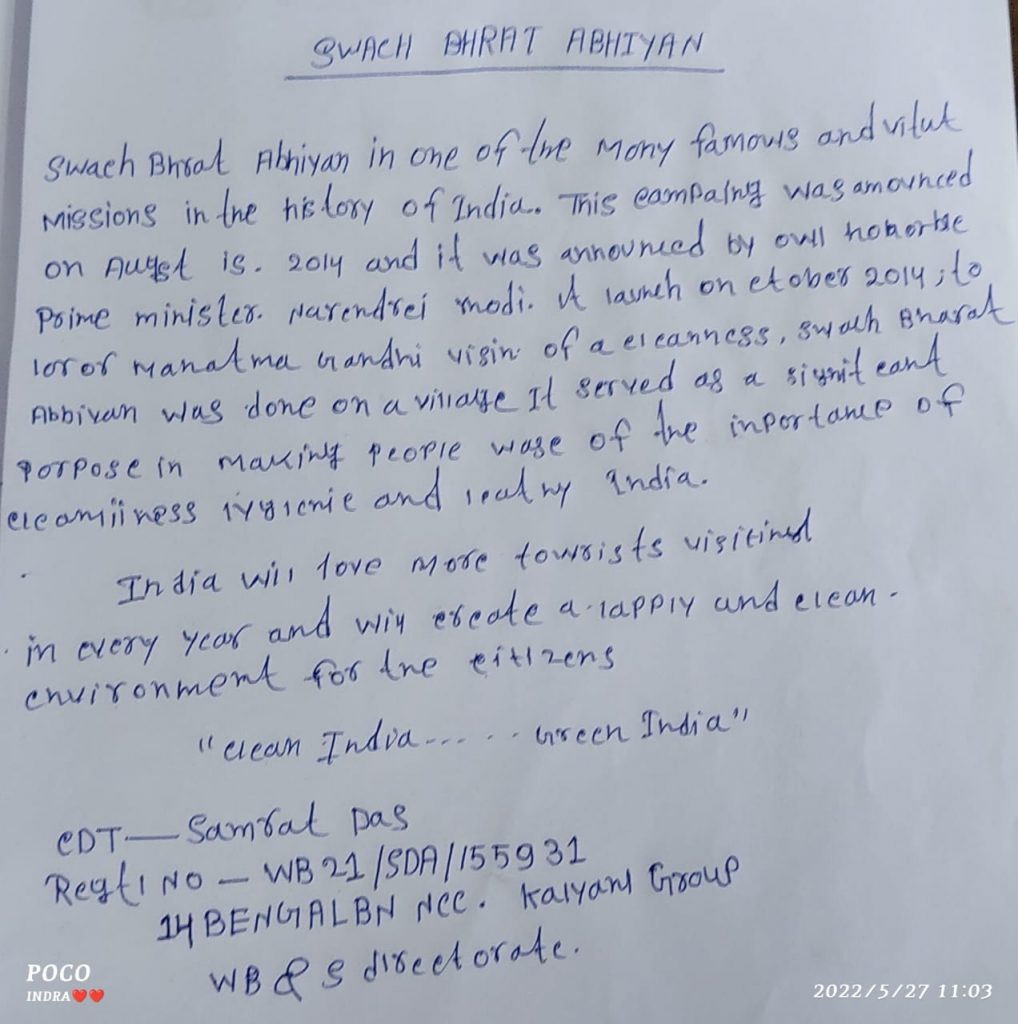 SWACH BHRAT ABHIYAN
Swach Bhrat Abhiyan in one of the Mony famows and vitut
Missions in the history of India. This campaing was amounced
on Augst is. 2014 and it was announced by owl honorble
Prime minister. Narendrei modi. It launch on ctober 2014, to
loror Manatma Gandhi visin of a cleanness, swach Bharat
Abbivan was done on a village It served as a signit cant
porpose in making people wase of the inportance of
cleamiiness iygienic and lealny India.
India will love more towrists visitind
in every year and will create a lapply and clean.
environment for the citizens
"clean India..... Green India"
CDT — Samrat Das
Regtl NO — WB21/SDA/155931
14 BENGAL BN NCC. Kalyani Group
WB & S directorate.
POCO
INDRA❤❤
2022/5/27 11:03